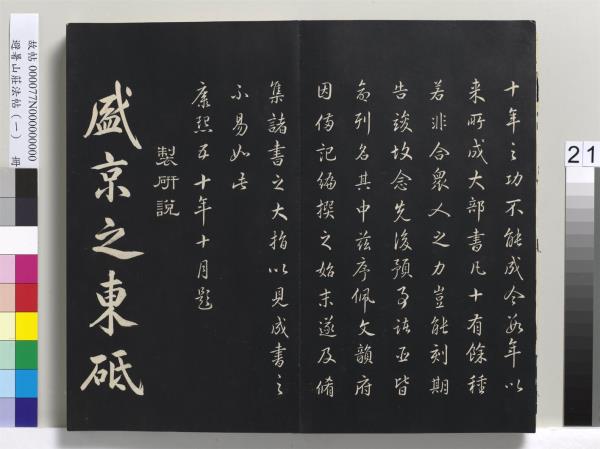 十年之功不能成今數年以
來所成大部書凡十有餘種
若非合衆人之力豈能刻期
告竣故念先後預事諸臣皆
命列名其中茲序佩文韻府
因備記編撰之始末遂及脩
集諸書之大指以見成書之
不易如此
康熙五十年十月題
製硏說
盛京之東砥
故帖 000077N000000000
避暑山莊法帖(一) 冊
21